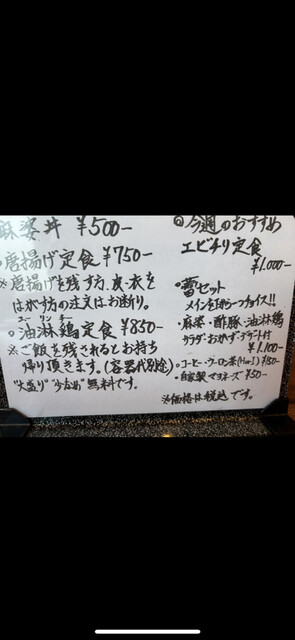 麻婆丼 ¥500-
○唐揚げ定食 ¥750-
※唐揚げを残す方、皮・衣を
はがす方の注文はお断り。
ユーリンチー
○油淋鶏定食 ¥850-
※ご飯を残されるとお持ち
帰り頂きます。(容器代別途)
"大盛り" "少なめ" 無料です。
◎今週のおすすめ
エビチリ定食
¥1.000-
・蕾セット
メインを1つチョイス!!
・麻婆・酢豚・油淋鶏
サラダ・おかず・デザート付
¥1.100-
・コーヒー・ウーロン茶(Hot) ¥150-
・自家製マヨネーズ ¥50-
※価格は税込です。